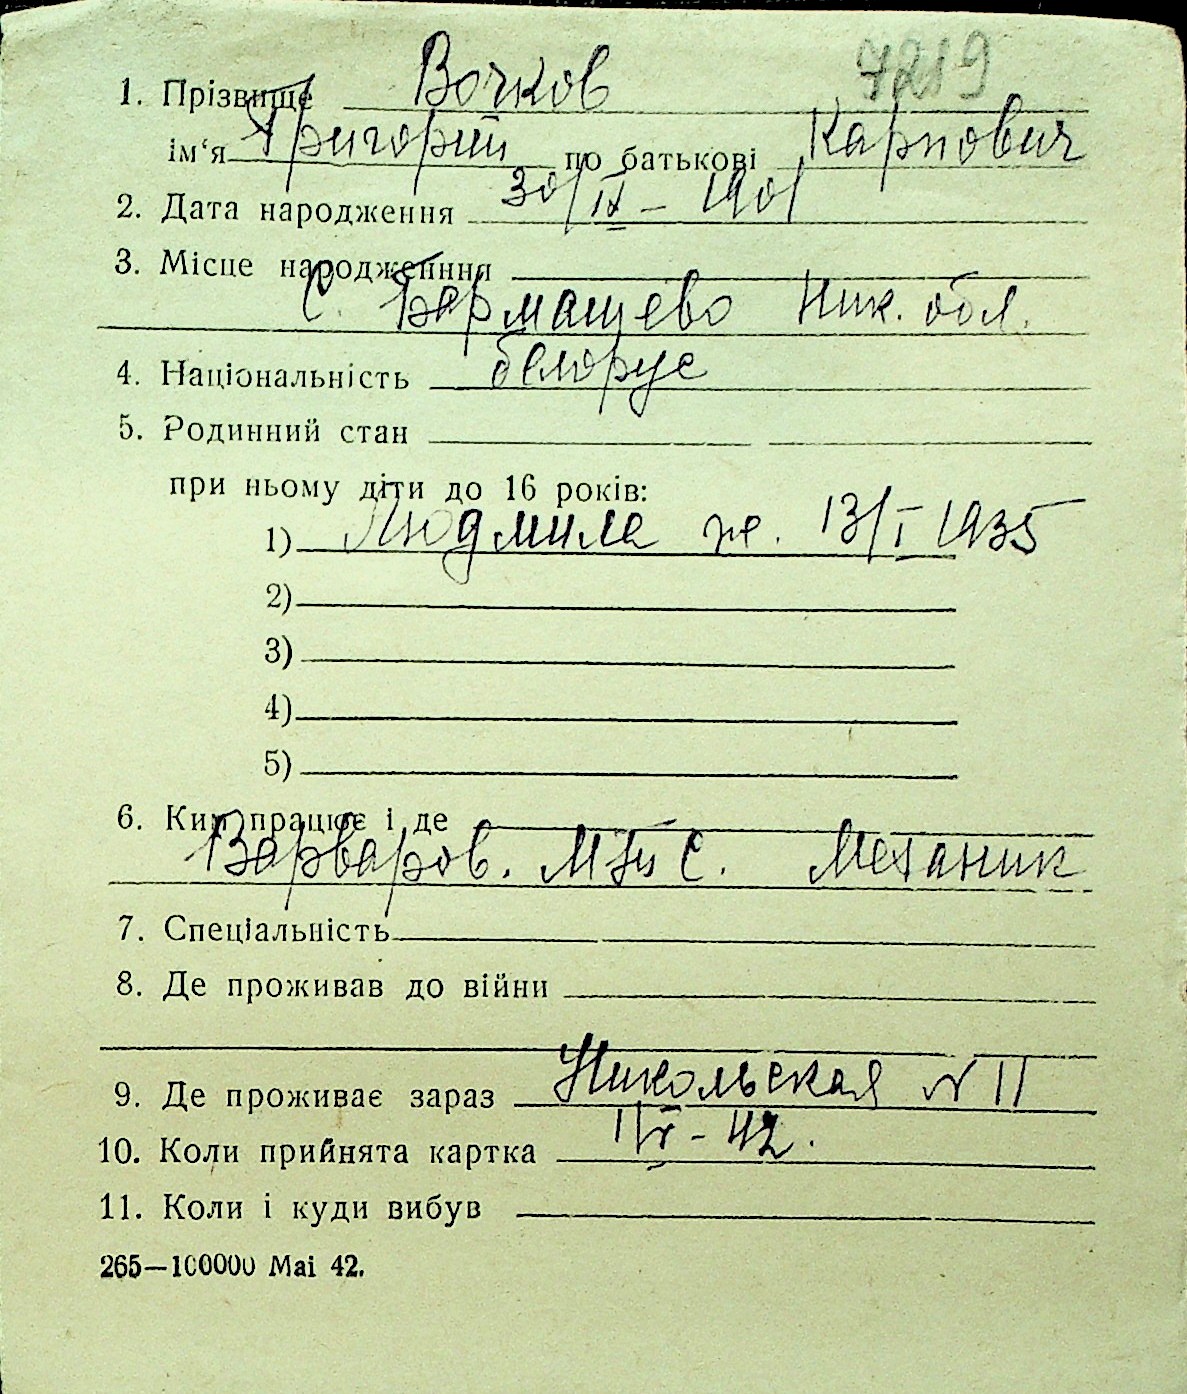 7219
1. Прізвище Вочков
ім‘я Григорий по батькові Карпович
2. Дата народження 30/IX – 1901
3. Місце народження
С. Бармашево Ник. обл.
4. Національність белорус
5. Родинний стан
при ньому діти до 16 років:
1) Людмила ж. 13/I 1935
2)
3)
4)
5)
6. Ким працює і де
Варваров. МТС. Механик
7. Спеціальність
8. Де проживав до війни
9. Де проживає зараз Никольская N 11
10. Коли прийнята картка - 42.
11. Коли і куди вибув
265—100000 Mai 42.